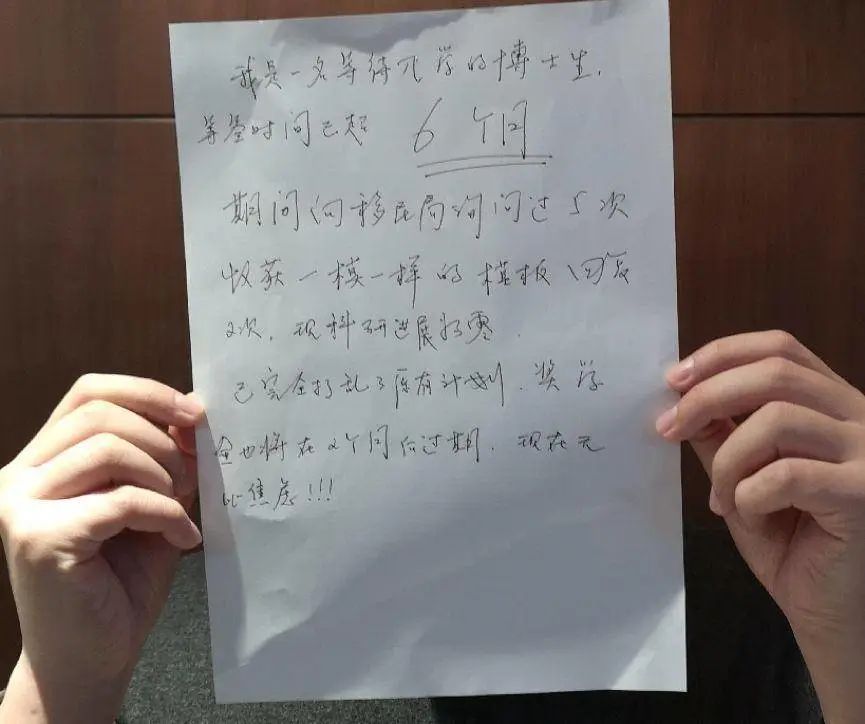 我是一名等待开学的博士生,
等签时间已超 6个月
期间向移民局询问过5次
收获一模一样的模板回复
2次, 现科研进展为零.
已完全打乱了原有计划, 奖学
金也将在2个月后过期. 现在无
比焦虑!!!